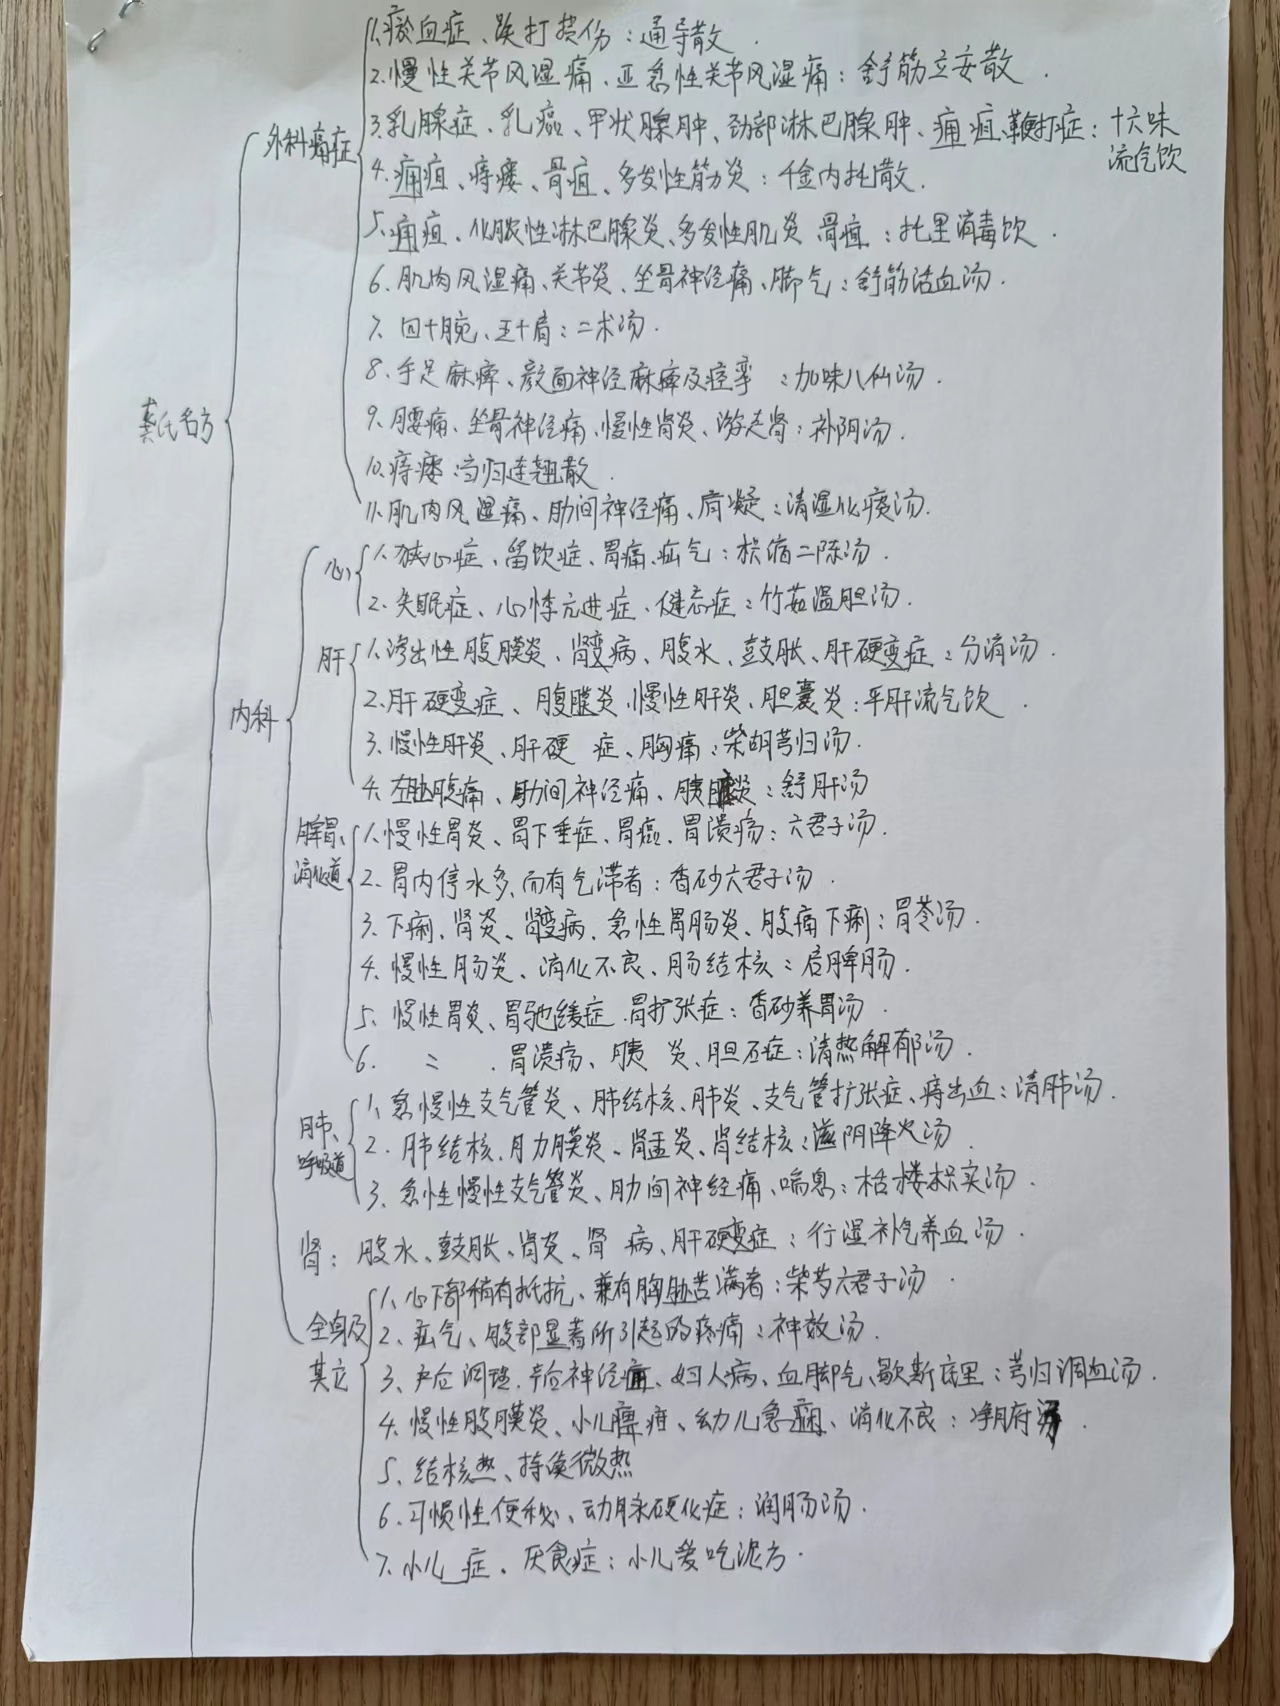 龚氏名方
外科痛症
1.瘀血症、跌打损伤：通导散.
2.慢性关节风湿痛、亚急性关节风湿痛：舒筋立安散.
3.乳腺症、乳癌、甲状腺肿、颈部淋巴腺肿、痈疽、鞭打症：十六味
流气饮
4.痈疽、痔瘘、骨疽、多发性筋炎：千金内托散.
5.痈疽、化脓性淋巴腺炎、多发性肌炎 骨疽：托里消毒饮.
6.肌肉风湿痛、关节炎、坐骨神经痛、脚气：舒筋活血汤.
7.四十腕、五十肩：二术汤.
8.手足麻痺、颜面神经麻痺及痉挛：加味八仙汤.
9.腰痛、坐骨神经痛、慢性肾炎、游走肾：补阴汤.
10.痔瘘：当归连翘散.
11.肌肉风湿痛、肋间神经痛、肩凝：清湿化痰汤.
内科
心
1.狭心症、留饮症、胃痛、疝气：枳缩二陈汤.
2.失眠症、心悸亢进症、健忘症：竹茹温胆汤.
肝
1.渗出性腹膜炎、肾变病、腹水、鼓胀、肝硬变症：分消汤.
2.肝硬变症、腹膜炎、慢性肝炎、胆囊炎：平肝流气饮.
3.慢性肝炎、肝硬 症、胸痛：柴胡芎归汤.
4.左胁腹痛、肋间神经痛、胰脏炎：舒肝汤
脾胃、
消化道
1.慢性胃炎、胃下垂症、胃癌、胃溃疡：六君子汤.
2.胃内停水多、而有气滞者：香砂六君子汤.
3.下痢、肾炎、肾变病、急性胃肠炎、腹痛下痢：胃苓汤.
4.慢性肠炎、消化不良、肠结核：启脾肠.
5.慢性胃炎、胃弛缓症.胃扩张症：香砂养胃汤.
6. 〃 .胃溃疡、胰 炎、胆石症：清热解郁汤.
肺、
呼吸道
1.急慢性支气管炎、肺结核、肺炎、支气管扩张症、痔出血：清肺汤.
2.肺结核、肋膜炎、肾盂炎、肾结核：滋阴降火汤.
3.急性慢性支气管炎、肋间神经痛、喘息：栝楼枳实汤.
肾：腹水、鼓胀、肾炎、肾 病、肝硬变症：行湿补气养血汤.
全身及
其它
1.心下部稍有抵抗、兼有胸胁苦满者：柴芍六君子汤.
2.疝气、腹部显著所引起的疼痛：神效汤.
3.产后调理、产后神经痛、妇人病、血脚气、歇斯底里：芎归调血汤.
4.慢性腹膜炎、小儿脾疳、幼儿急痫、消化不良：净府汤.
5.结核热、持续微热
6.习惯性便秘、动脉硬化症：润肠汤.
7.小儿 症、厌食症：小儿爱吃泥方.